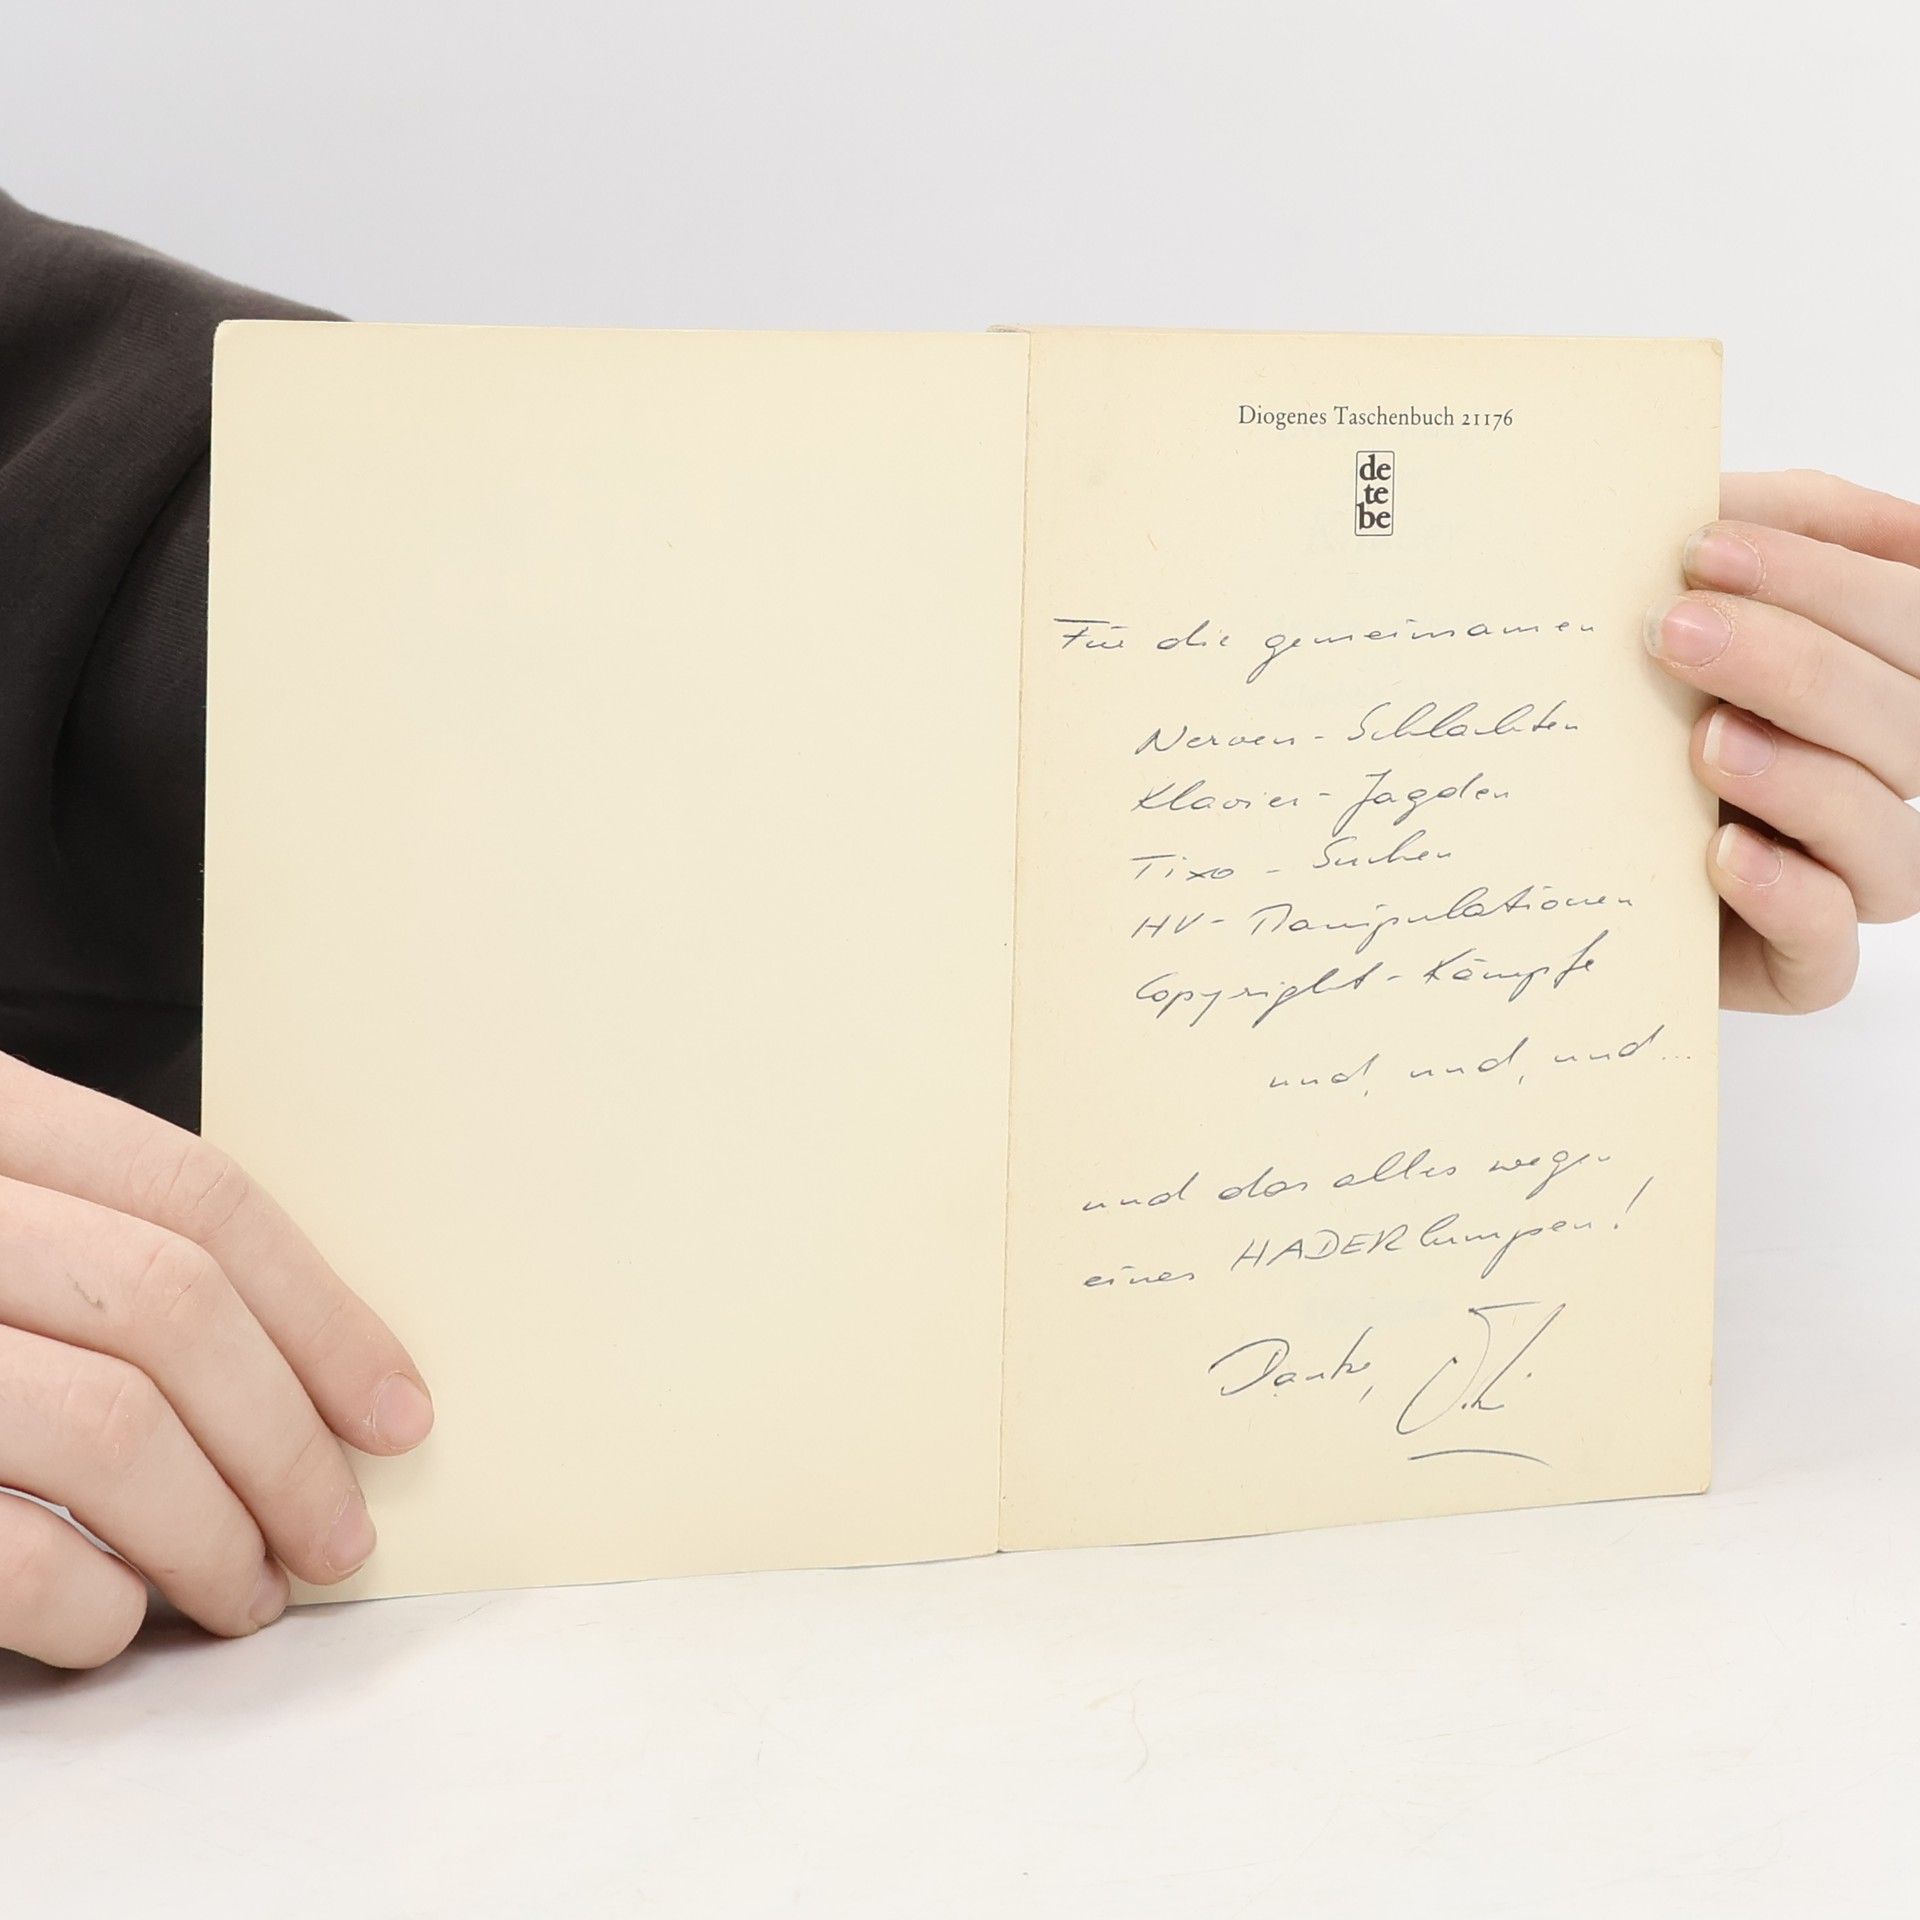 Diogenes Taschenbuch 21176
de
te
be
Für die gemeinsamen
Nerven-Schlachten
Klavier-Jagden
Tixo-Suchen
HV-Manipulationen
Copyright-Kämpfe
und, und, und...
und das alles wegen
eines HADERlumpen!
Danke,